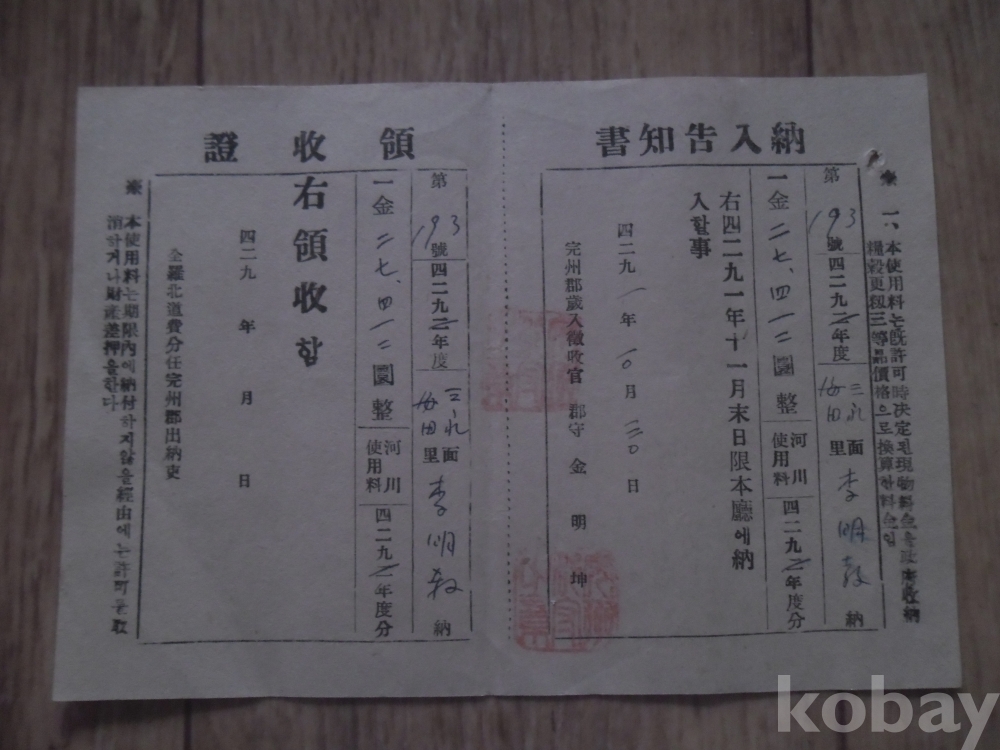 納入告知書
※ 一、本使用料는既許可時決定된現物料金을政府收納
糧穀更租三等品價格으로換算한料金임
第193號 四二九一年度 三礼面 海田里 李明 納
一金二七、四一二圜整 河川使用料 四二九一年度分
右四二九一年十一月末日限本廳에納
入할事
四二九一年一〇月三〇日
完州郡歲入徵收官 郡守 金明坤
領收證
第193號 四二九一年度 三礼面 海田里 李明 納
一金二七、四一二圜整 河川使用料 四二九一年度分
右領收함
四二九 年 月 日
全羅北道費分任完州郡出納吏
※ 本使用料는期限內에納付하지않을經由에는許可를取
消하거나財産差押을한다
kobay